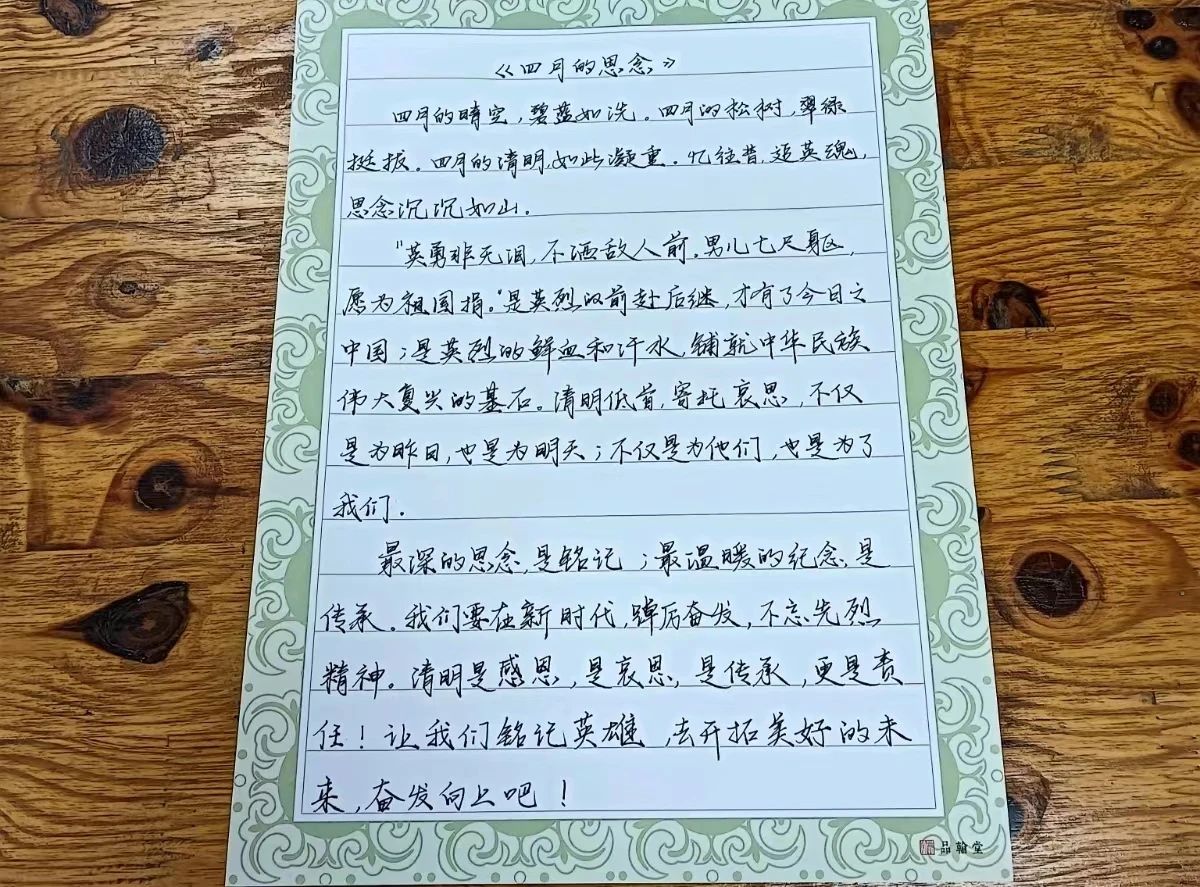 《四月的思念》
四月的晴空，碧蓝如洗。四月的松树，翠绿
挺拔。四月的清明，如此凝重。忆往昔，追英魂，
思念沉沉如山。
“英勇非无泪，不洒敌人前。男儿七尺躯，
愿为祖国捐。”是英烈的前赴后继，才有了今日之
中国；是英烈的鲜血和汗水，铺就中华民族
伟大复兴的基石。清明低首，寄托哀思，不仅
是为昨日，也是为明天；不仅是为他们，也是为了
我们。
最深的思念，是铭记；最温暖的纪念，是
传承。我们要在新时代，踔厉奋发，不忘先烈
精神。清明是感恩，是哀思，是传承，更是责
任！让我们铭记英雄，去开拓美好的未
来，奋发向上吧！
品翰堂